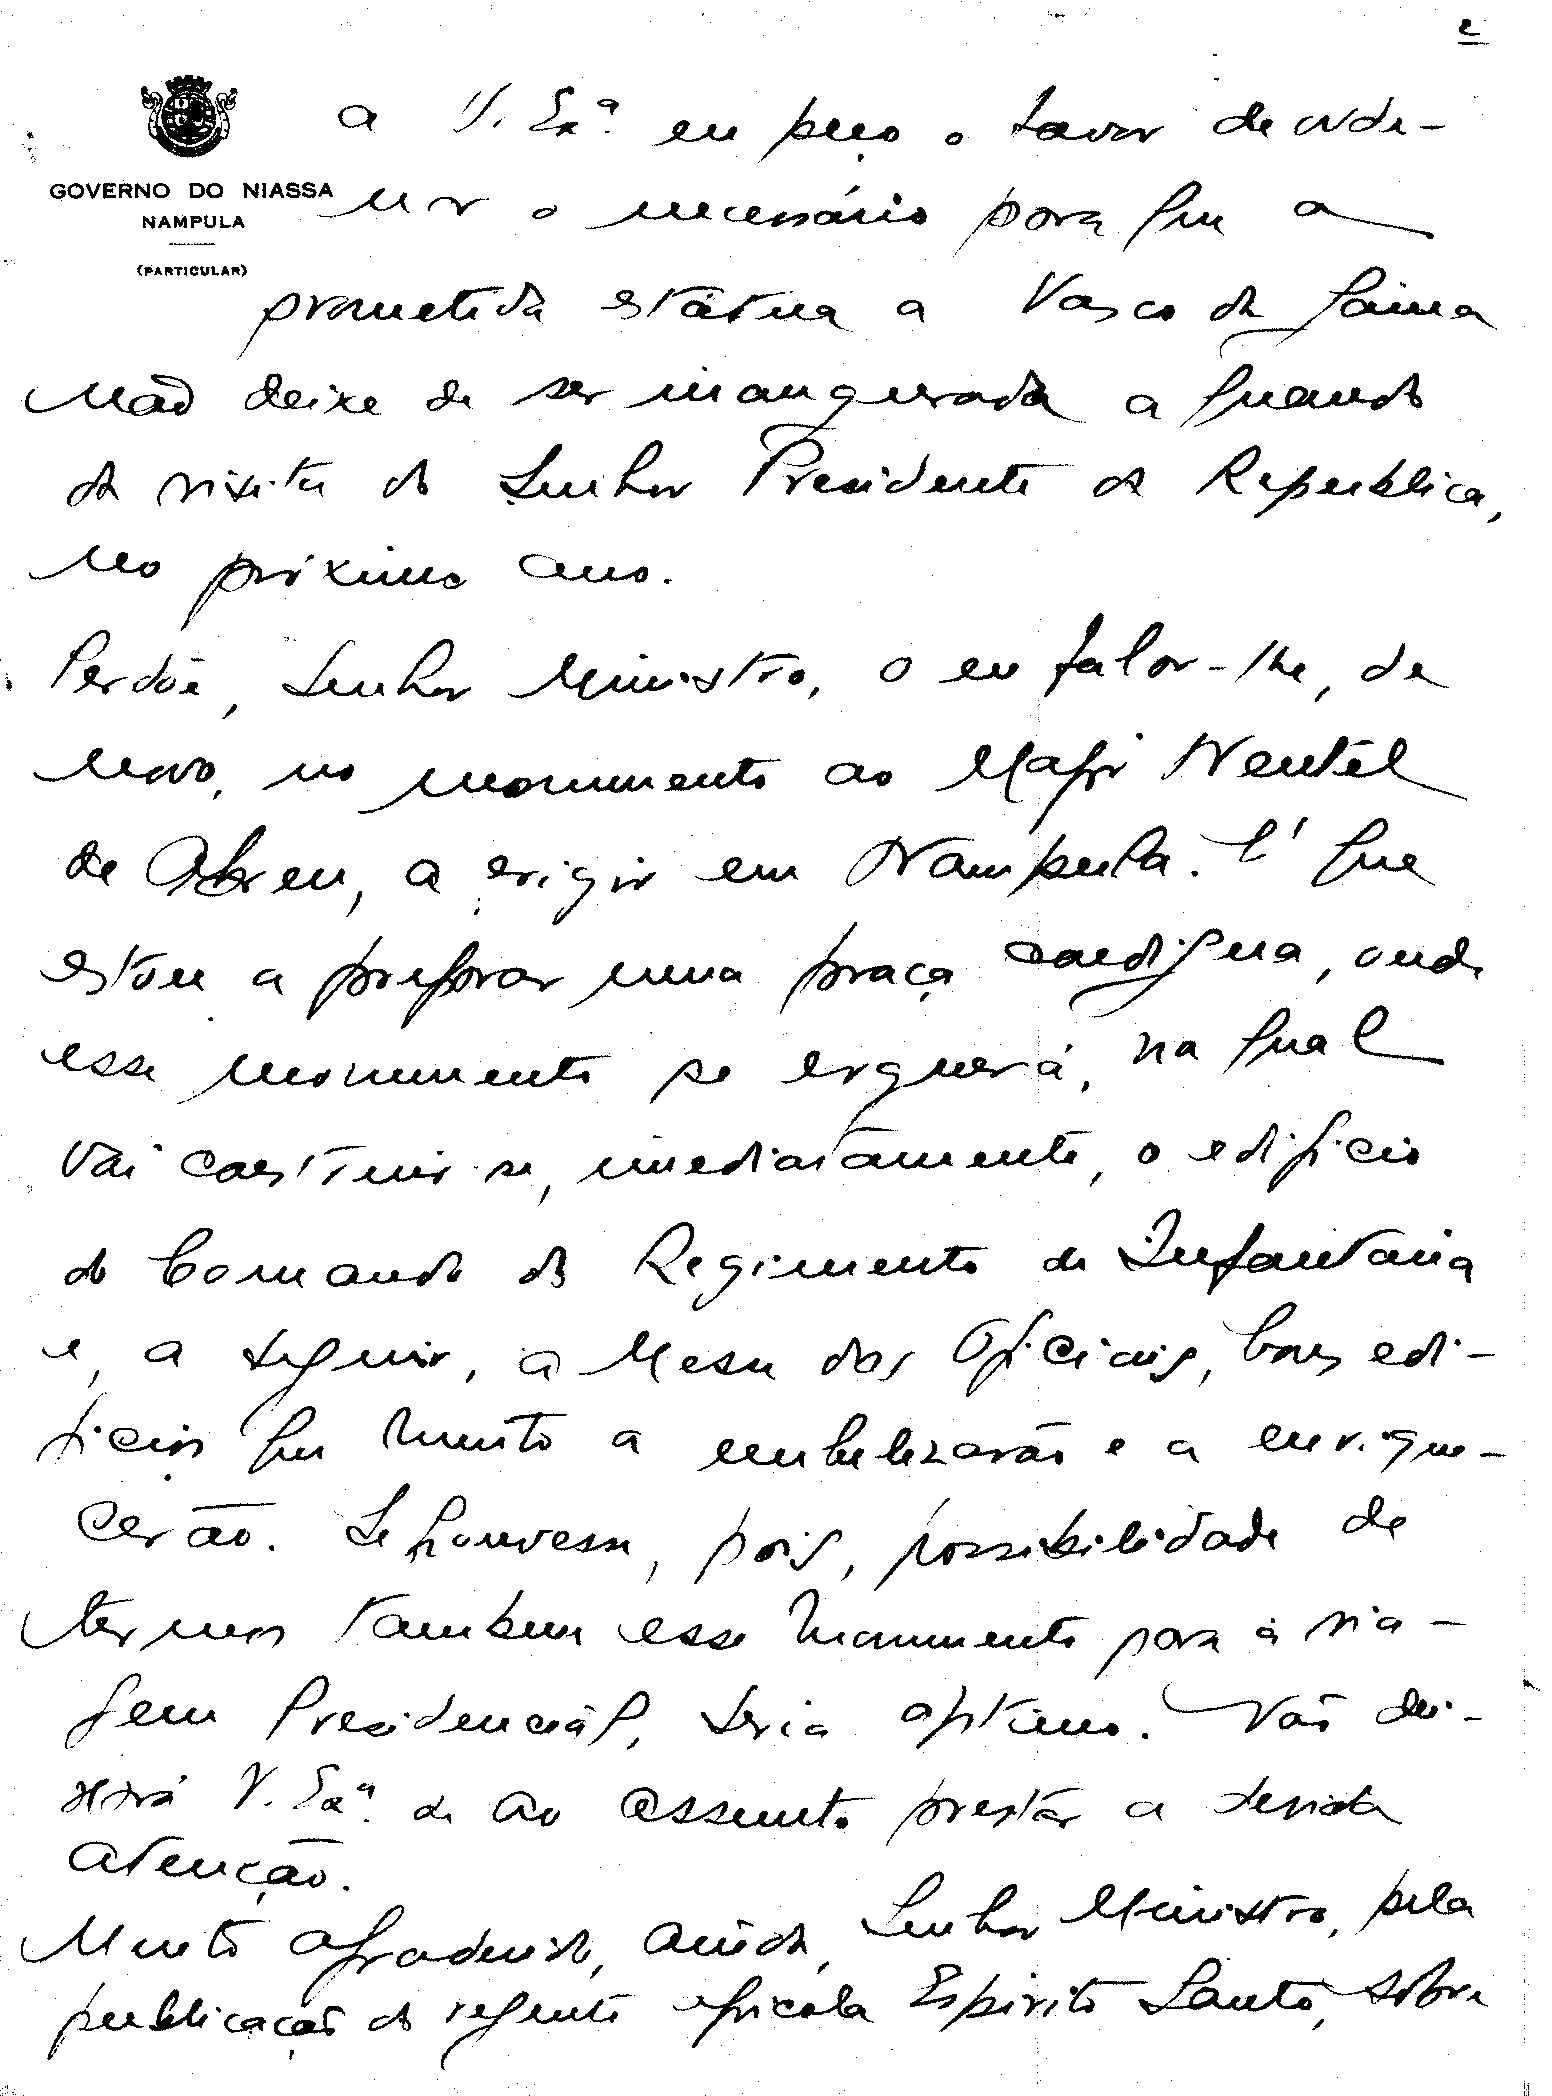 2
GOVERNO DO NIASSA
NAMPULA
(PARTICULAR)
a V. Exª. eu peço o favor de orde-
nar o necessário para que a
prometida estátua a Vasco da Gama
não deixe de ser inaugurada a quando
da visita do Senhor Presidente da Republica,
no próximo ano.
Perdôe, Senhor Ministro, o eu falar-lhe, de
novo, no monumento ao Major Neutel
de Abreu, a erigir em Nampula. É que
estou a preparar uma praça condigna, onde
esse monumento se erguerá, na qual
vai construir-se, imediatamente, o edificio
do Comando do Regimento de Infantaria
e, a seguir, a Mesa dos Oficiais, bons edi-
ficios que muito a embelezarão e a enrique-
cerão. Se houvesse, pois, possibilidade de
termos tambem esse monumento para a via-
gem Presidencial, seria optimo. Não dei-
xará V. Exª. de ao assunto prestar a devida
atenção.
Muito agradecido, ainda, Senhor Ministro, pela
publicação do regente agricola Espirito Santo, sobre